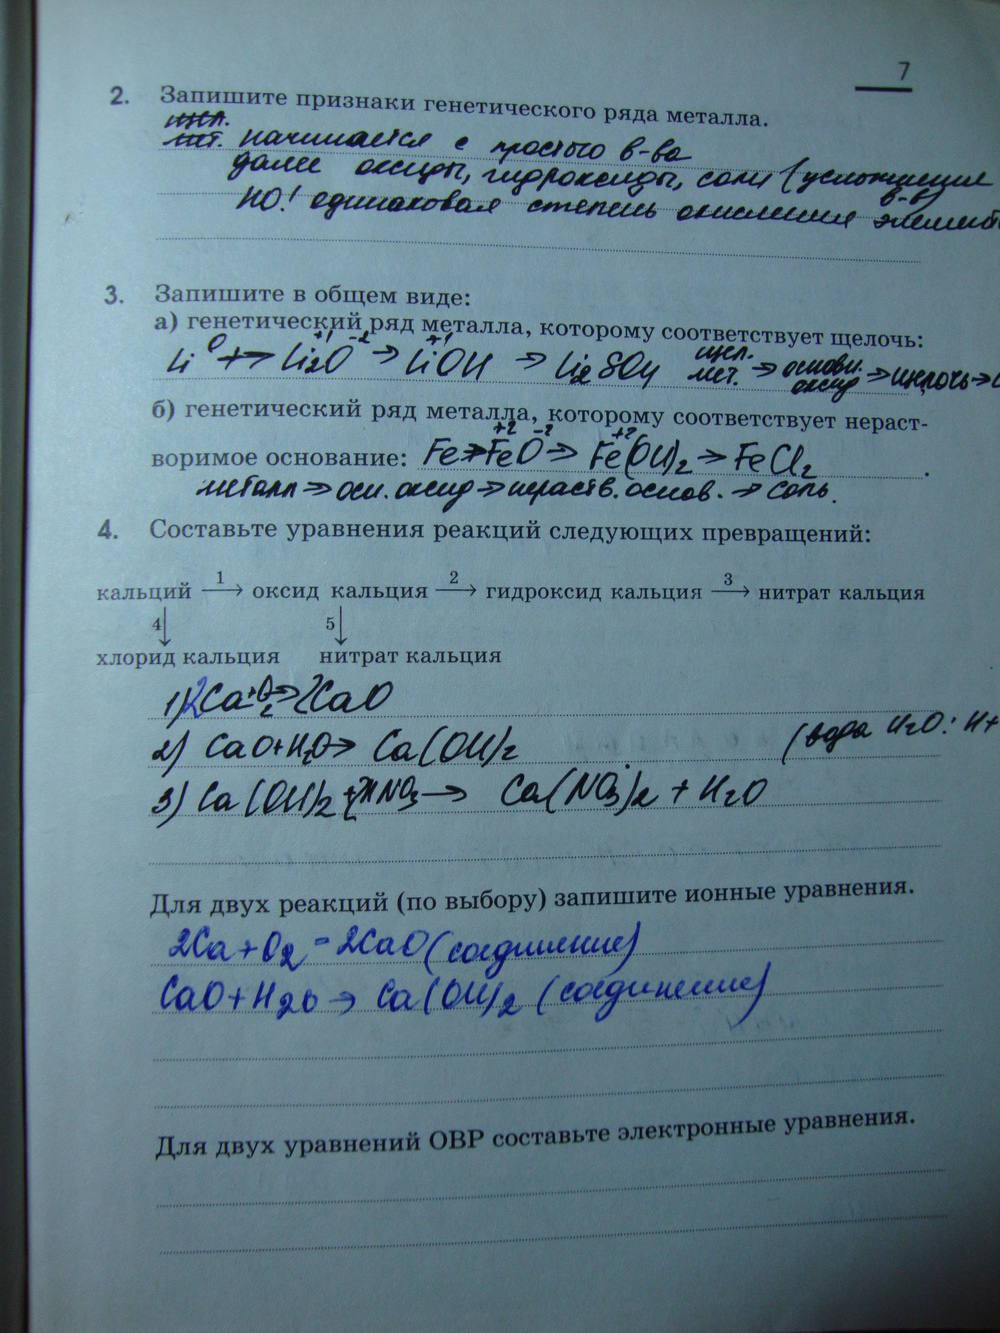 7
2. Запишите признаки генетического ряда металла.
щел.
мет. начинается с простого в-ва
далее оксиды, гидроксиды, соли (усложнение
в-в)
НО! одинаковая степень окисления элемент
3. Запишите в общем виде:
а) генетический ряд металла, которому соответствует щелочь:
Li⁰ → Li₂⁺¹O⁻² → Li⁺¹OH → Li₂SO₄ щел. мет. → основн. оксид → щелочь →
б) генетический ряд металла, которому соответствует нераст-
воримое основание: Fe → Fe⁺²O⁻² → Fe⁺²(OH)₂ → FeCl₂ .
металл → осн. оксид → нераств. основ. → соль.
4. Составьте уравнения реакций следующих превращений:
кальций 1→ оксид кальция 2→ гидроксид кальция 3→ нитрат кальция
4↓ 5↓
хлорид кальция нитрат кальция
1) 2Ca+O₂→2CaO
2) CaO+H₂O→ Ca(OH)₂ (вода H₂O: H+
3) Ca(OH)₂+2HNO₃→ Ca(NO₃)₂ + H₂O
Для двух реакций (по выбору) запишите ионные уравнения.
2Ca+O₂ = 2CaO (соединение)
CaO+H₂O → Ca(OH)₂ (соединение)
Для двух уравнений ОВР составьте электронные уравнения.